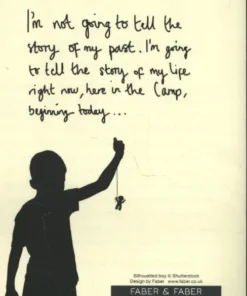 I'm not going to tell the
story of my past. I'm going
to tell the story of my life
right now, here in the Camp,
begining today...
Silhouetted boy © Shutterstock
Design by Faber www.faber.co.uk
FABER & FABER